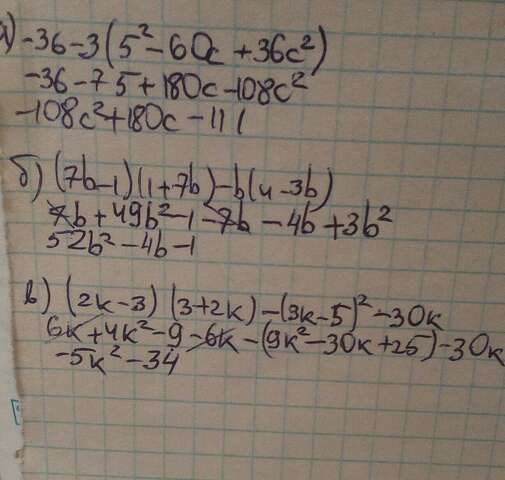 а) -36-3(5²-60c+36c²)
-36-75+180c-108c²
-108c²+180c-111
б) (7b-1)(1+7b)-b(4-3b)
7b+49b²-1-7b-4b+3b²
52b²-4b-1
в) (2k-3)(3+2k)-(3k-5)²-30k
6k+4k²-9-6k-(9k²-30k+25)-30k
-5k²-34